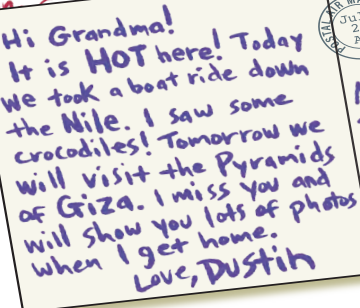 Hi Grandma!
It is HOT here! Today
we took a boat ride down
the Nile. I saw some
crocodiles! Tomorrow we
will visit the Pyramids
of Giza. I miss you and
will show you lots of photos
when I get home.
Love, Dustin
POSTAL AIR MA
Ju
2